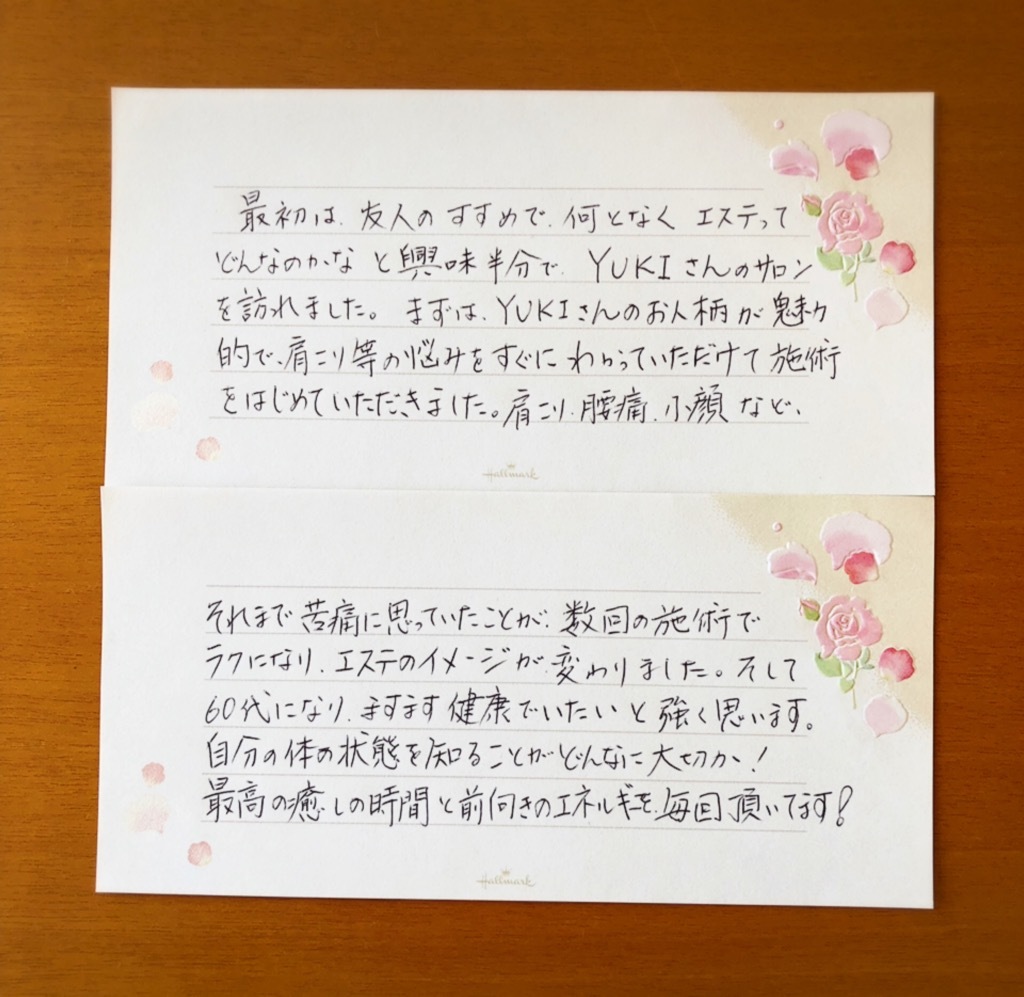 最初は、友人のすすめで、何となく エステって
どんなのかな と興味半分で、YUKIさんのサロン
を訪れました。 まずは、YUKIさんのお人柄が魅力
的で、肩こり等の悩みをすぐに わかっていただけて 施術
をはじめていただきました。肩こり、腰痛、小顔 など、
Hallmark
それまで 苦痛に思っていたことが、数回の施術で
ラクになり、エステのイメージが、変わりました。そして
60代になり、ますます 健康でいたい と 強く思います。
自分の体の状態を知ることがどんなに 大切か!
最高の癒しの時間と前向きのエネルギを、毎回頂いてます!
Hallmark